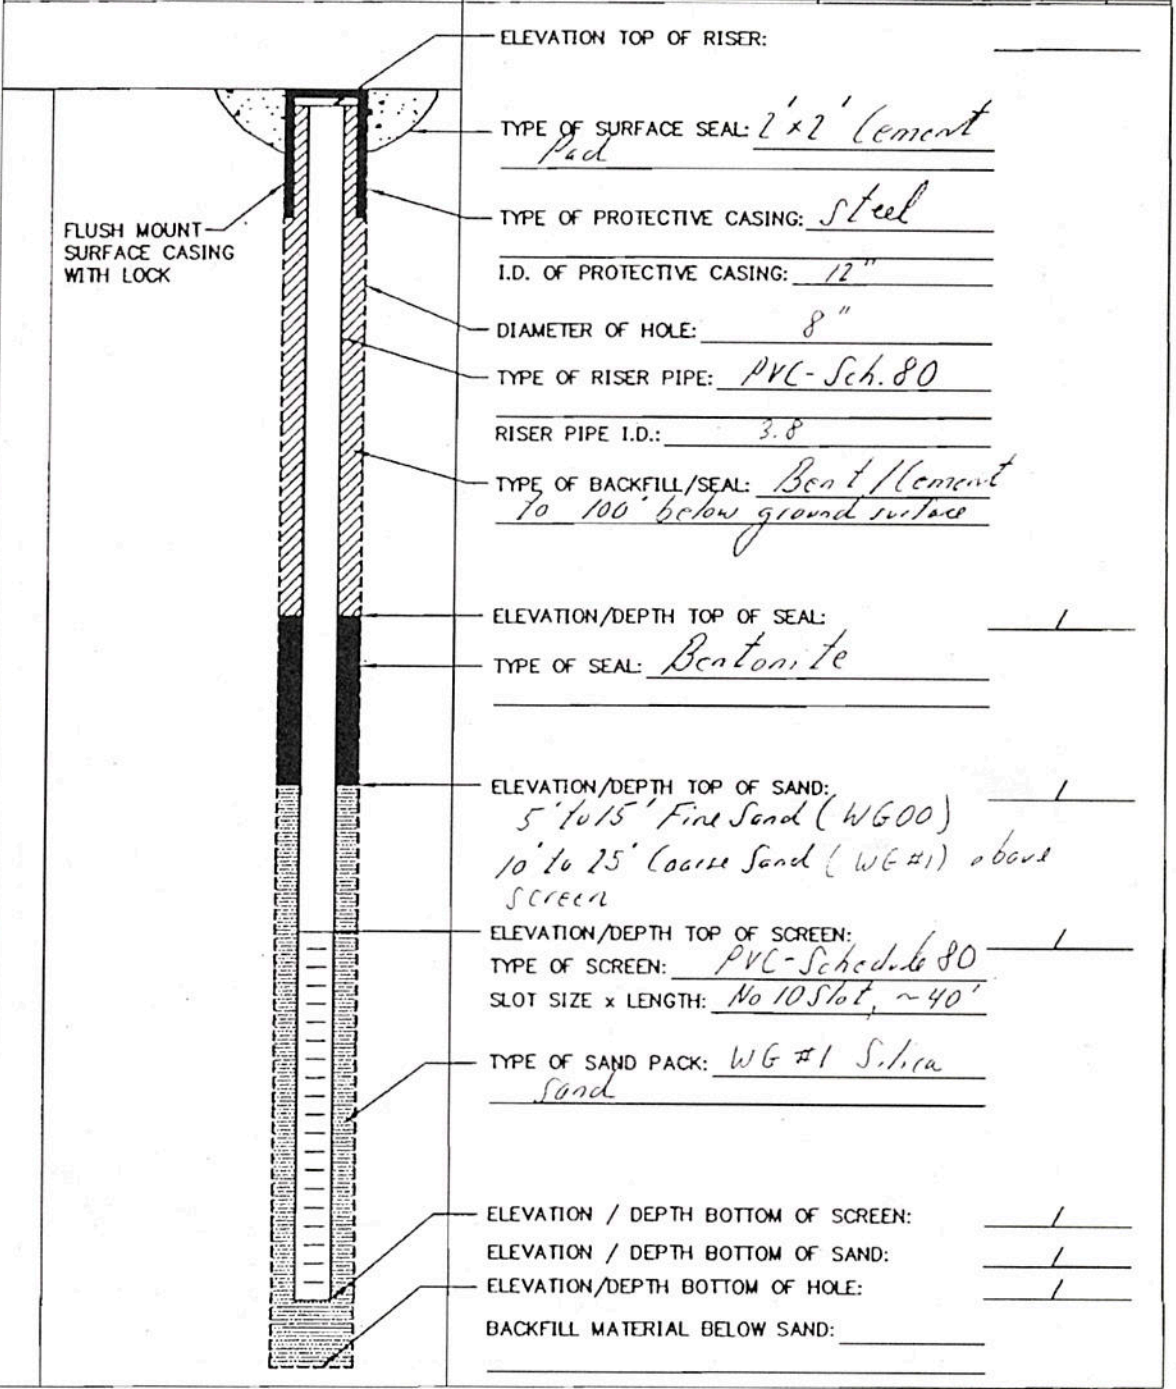 ELEVATION TOP OF RISER:
TYPE OF SURFACE SEAL: 2' x 2' Cement
Pad
TYPE OF PROTECTIVE CASING: Steel
FLUSH MOUNT
SURFACE CASING
WITH LOCK
I.D. OF PROTECTIVE CASING: 12"
DIAMETER OF HOLE: 8"
TYPE OF RISER PIPE: PVC-Sch. 80
RISER PIPE I.D.: 3.8
TYPE OF BACKFILL/SEAL: Bent/Cement
To 100' below ground surface
ELEVATION/DEPTH TOP OF SEAL: /
TYPE OF SEAL: Bentonite
ELEVATION/DEPTH TOP OF SAND: /
5' to 15' Fine Sand (WG00)
10' to 25' Coarse Sand (WG #1) above
screen
ELEVATION/DEPTH TOP OF SCREEN: /
TYPE OF SCREEN: PVC-Schedule 80
SLOT SIZE x LENGTH: No 10 Slot, ~40'
TYPE OF SAND PACK: WG #1 Silica
Sand
ELEVATION / DEPTH BOTTOM OF SCREEN: /
ELEVATION / DEPTH BOTTOM OF SAND: /
ELEVATION/DEPTH BOTTOM OF HOLE: /
BACKFILL MATERIAL BELOW SAND: